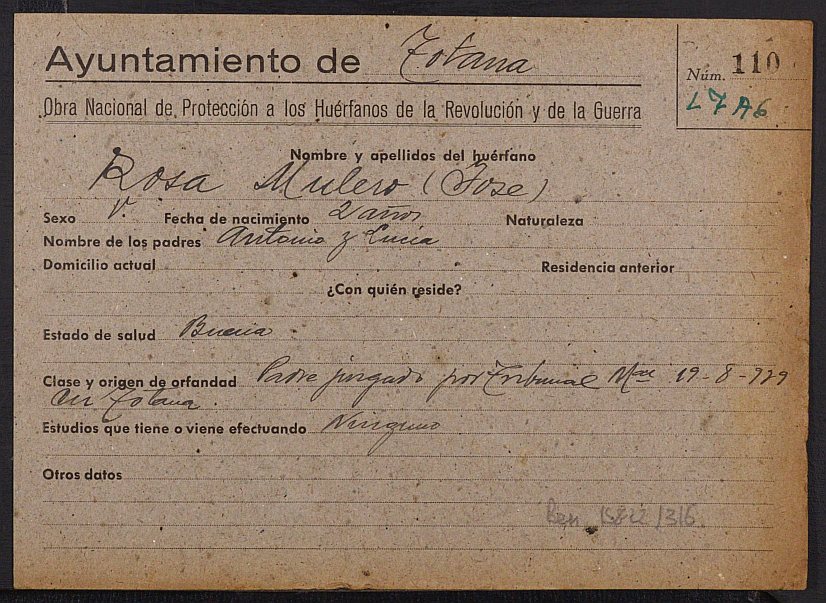 Ayuntamiento de Totana
Núm. 110
L7 A6
Obra Nacional de Protección a los Huérfanos de la Revolución y de la Guerra
Nombre y apellidos del huérfano
Rosa Mulero (Jose)
Sexo V. Fecha de nacimiento 2 años Naturaleza
Nombre de los padres Antonio y Lucia
Domicilio actual Residencia anterior
¿Con quién reside?
Estado de salud Buena
Clase y origen de orfandad Padre juzgado por Tribunal 19-8-939
en Totana.
Estudios que tiene o viene efectuando Ninguno
Otros datos
Ben /316